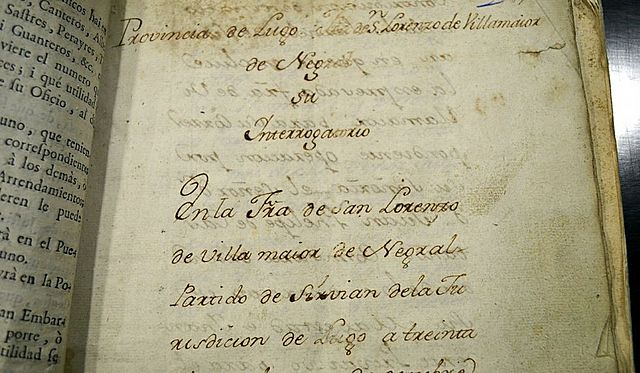 nicos ha
, Canteros, Al
Sastres, Perayres, T
i Guanteros, &c. e
viere el numero q
ces; i què utilidad
e su Oficio, al d
uno, que tenien
correspondiente
à los demàs, o
Arrendamientos
eren le puede
rà en el Pue-
uno.
vrà en la Po-
an Embar-
porte, ò
utilidad se
Provincia de Lugo Fra. de Sn. Lorenzo de Villamaior
de Negral
Su
Interrogatorio
En la Fra. de San Lorenzo
de Villa maior de Negral-
Partido de Sirvian dela Ju
risdicion de Lugo a treinta